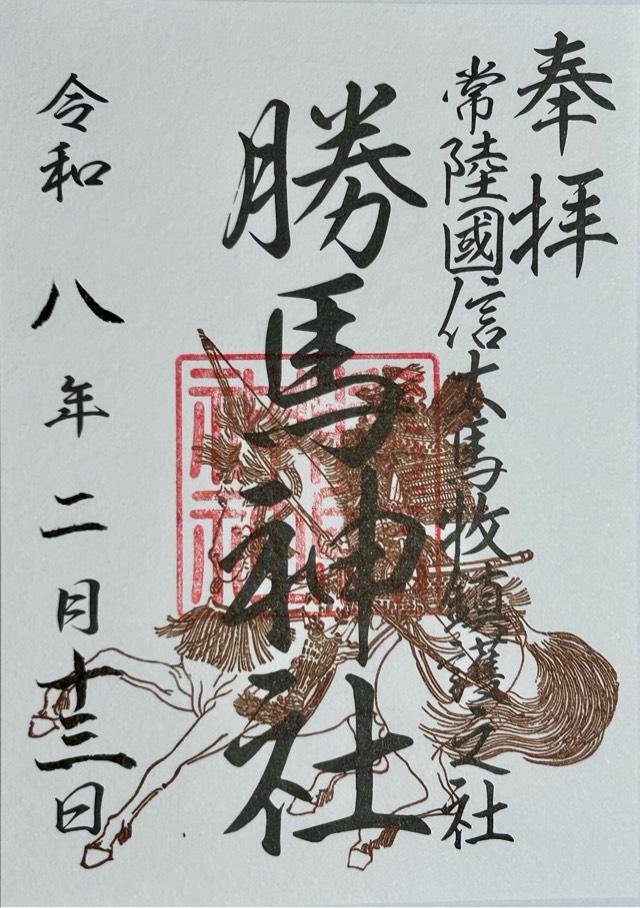 奉拝
常陸國信太馬牧鎮護之社
勝馬神社
令和八年二月十三日